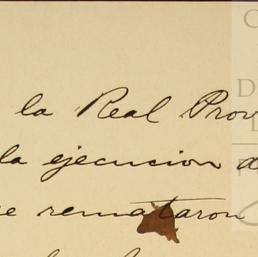 la Real Prov
la ejecucion d
se remataron